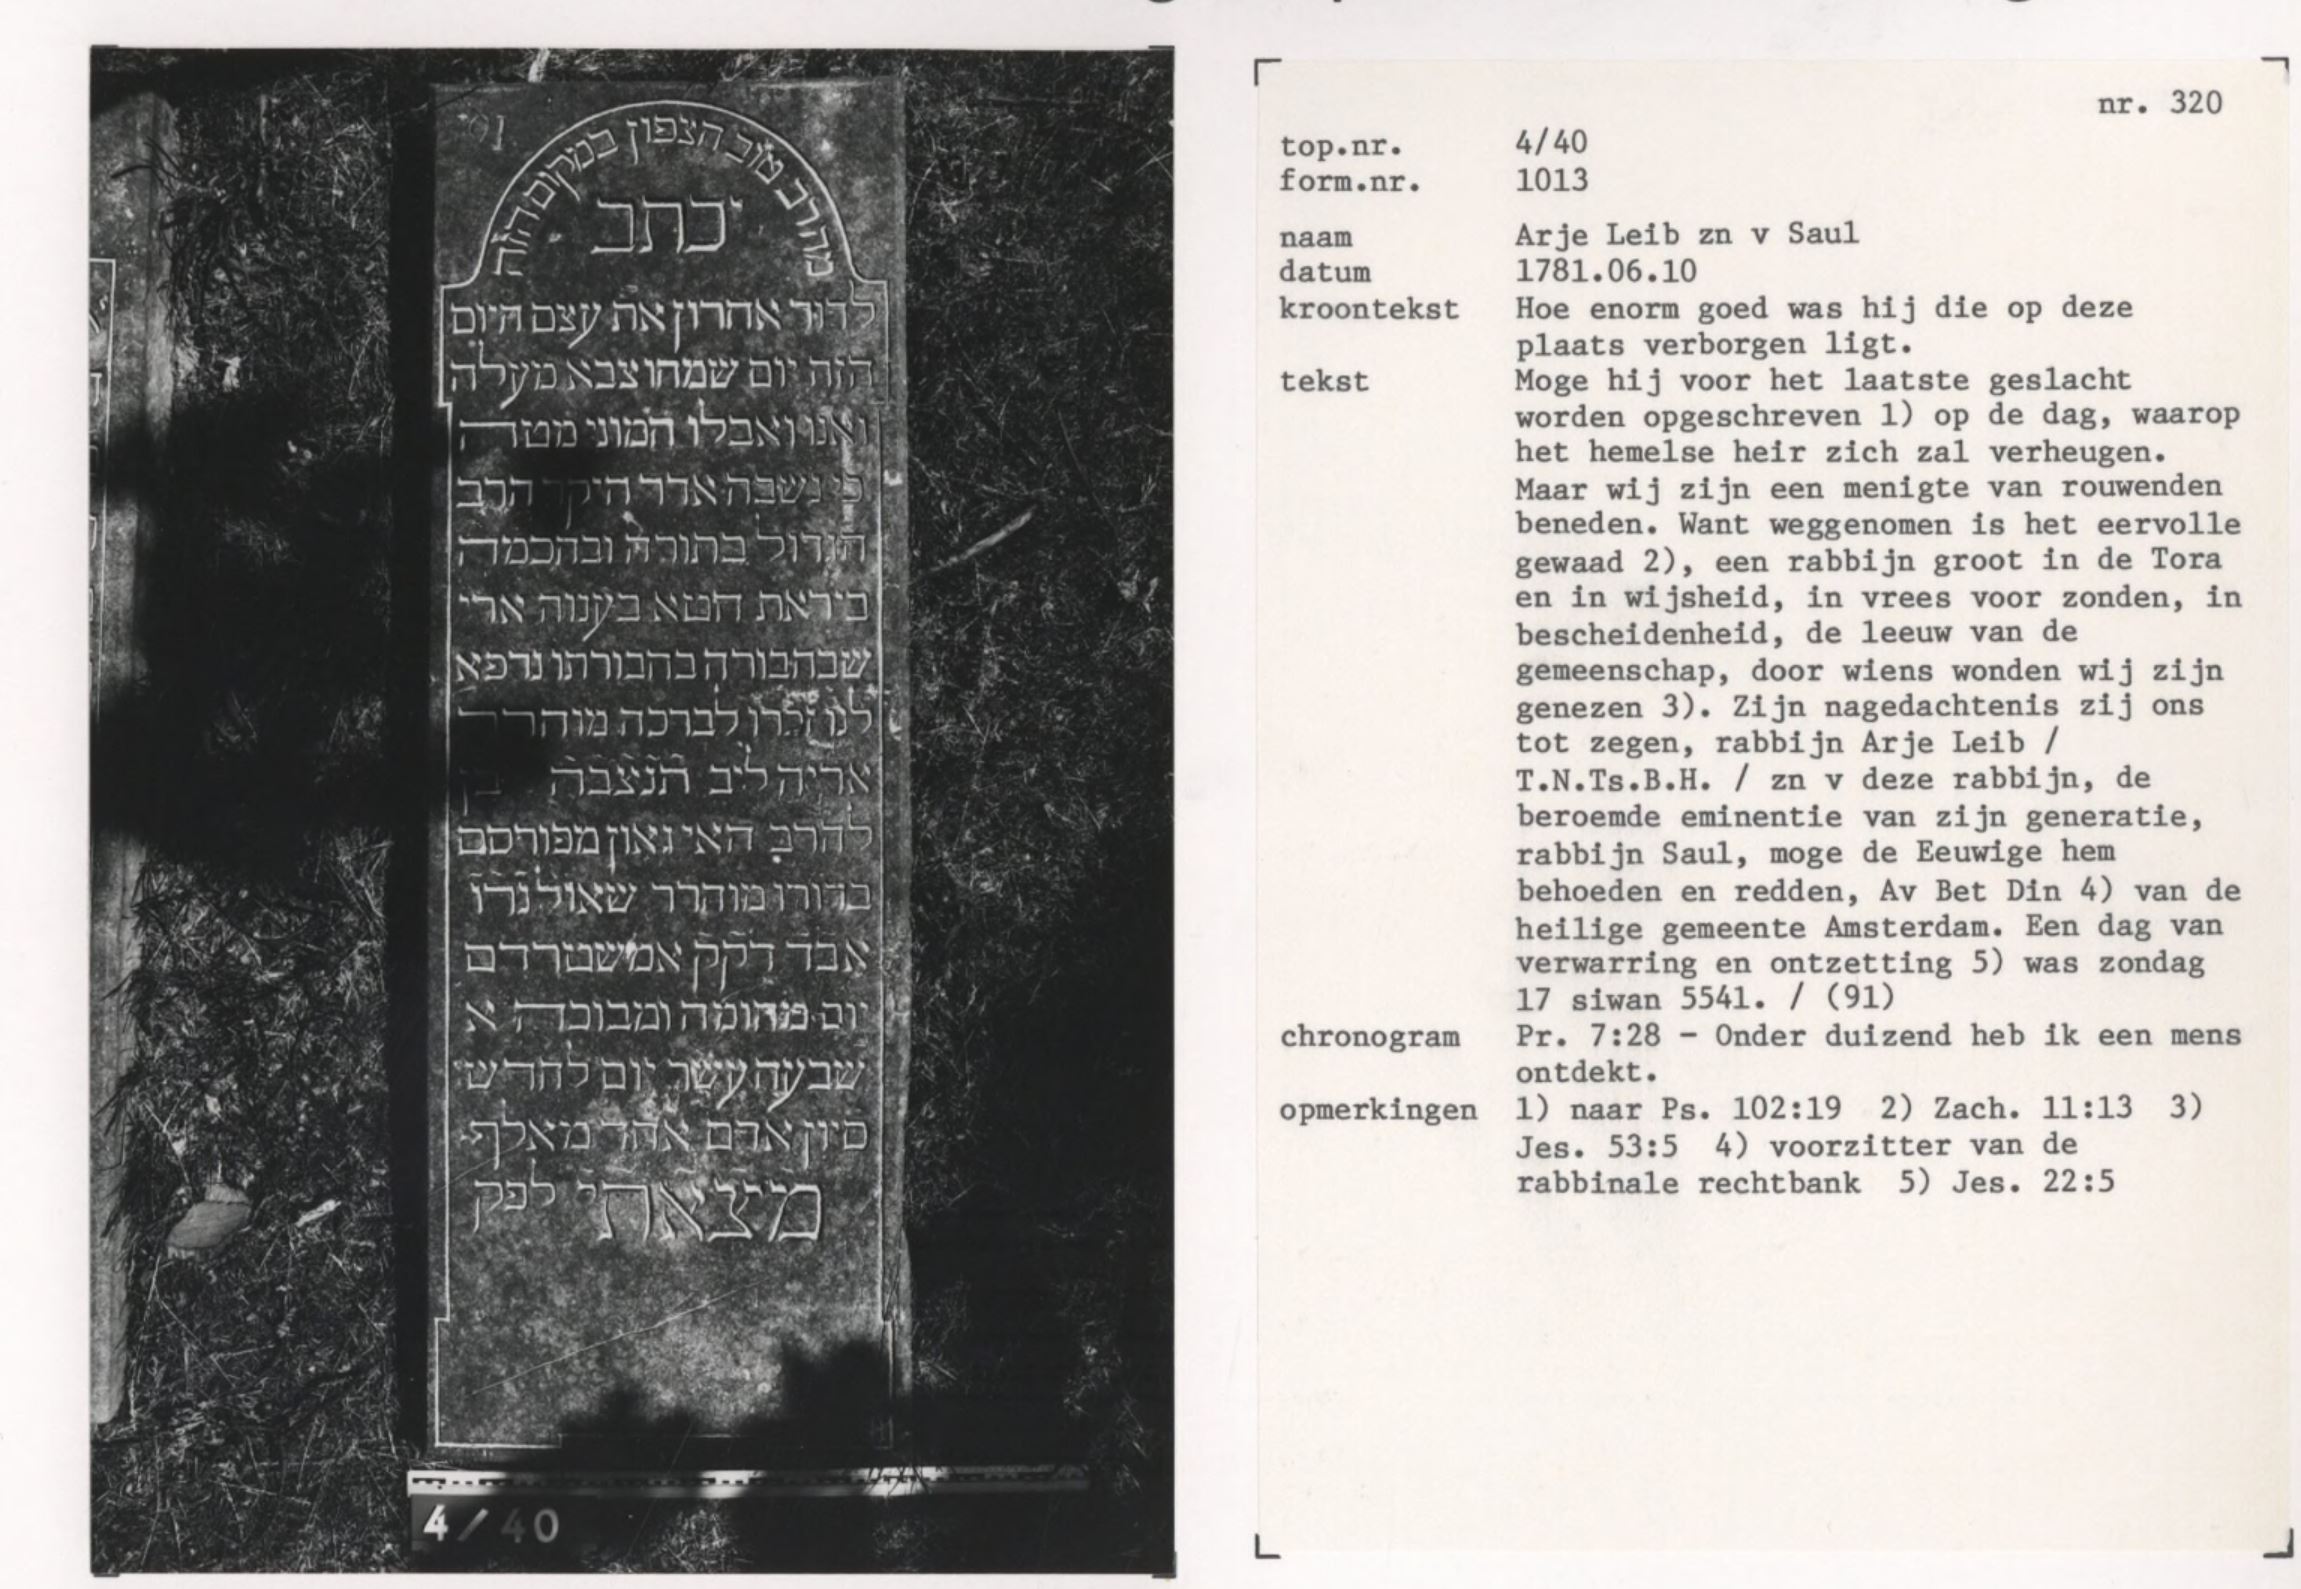 מה רב טוב הצפון במקום הזה
יכתב
לדור אחרון את עצם היום
הזה יום שמחו צבא מעלה
ואנו ואבלו המוני מטה
כי נשבה אדר היקר הרב
הגדול בתורה ובחכמה
ביראת חטא בענוה ארי
שבחבורה בחבורתו נרפא
לנו זכרו לברכה מוהרר
אריה ליב תנצבה בן
להרב האי גאון מפורסם
בדורו מוהרר שאול נרו
אבד דקק אמשטרדם
יום מהומה ומבוכה א
שבעה עשר יום לחדש
סיון אדם אחד מאלף
מצאתי לפק
4/40
nr. 320
top.nr. 4/40
form.nr. 1013
naam Arje Leib zn v Saul
datum 1781.06.10
kroontekst Hoe enorm goed was hij die op deze
plaats verborgen ligt.
tekst Moge hij voor het laatste geslacht
worden opgeschreven 1) op de dag, waarop
het hemelse heir zich zal verheugen.
Maar wij zijn een menigte van rouwenden
beneden. Want weggenomen is het eervolle
gewaad 2), een rabbijn groot in de Tora
en in wijsheid, in vrees voor zonden, in
bescheidenheid, de leeuw van de
gemeenschap, door wiens wonden wij zijn
genezen 3). Zijn nagedachtenis zij ons
tot zegen, rabbijn Arje Leib /
T.N.Ts.B.H. / zn v deze rabbijn, de
beroemde eminentie van zijn generatie,
rabbijn Saul, moge de Eeuwige hem
behoeden en redden, Av Bet Din 4) van de
heilige gemeente Amsterdam. Een dag van
verwarring en ontzetting 5) was zondag
17 siwan 5541. / (91)
chronogram Pr. 7:28 - Onder duizend heb ik een mens
ontdekt.
opmerkingen 1) naar Ps. 102:19 2) Zach. 11:13 3)
Jes. 53:5 4) voorzitter van de
rabbinale rechtbank 5) Jes. 22:5